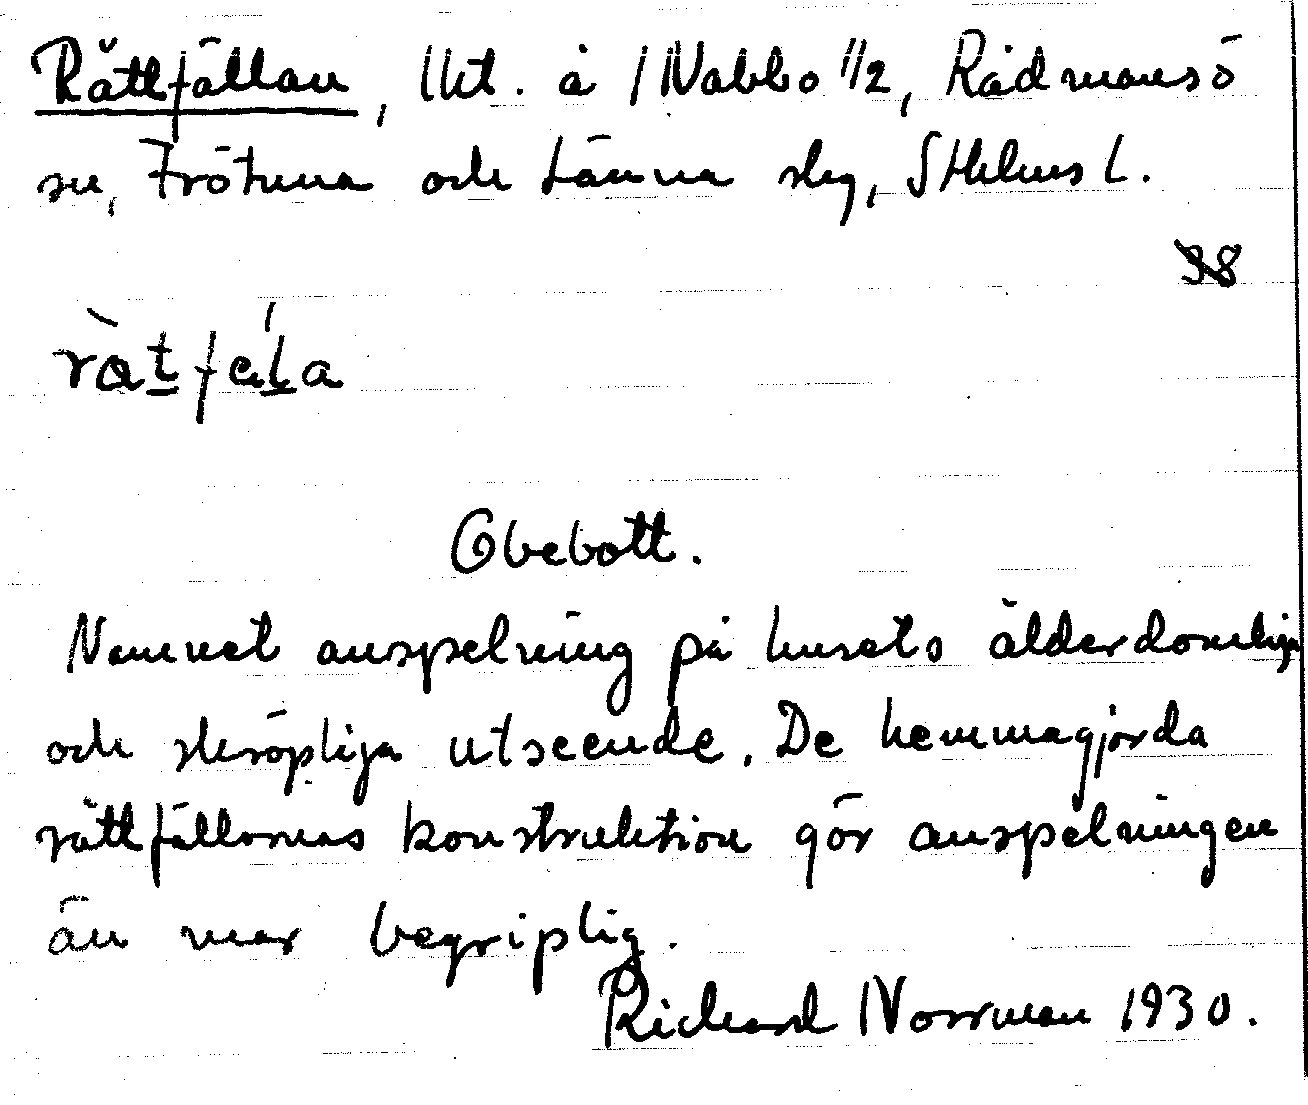 Råttfällan, lht. å Nabbo 1/2, Rådmansö
sn, Frötuna och Länna slg, Sthlms L.
38
rà̀t̲fɛl̲a
Obebott.
Namnet anspelning på husets ålderdomliga
och skröpliga utseende. De hemmagjorda
råttfällornas konstruktion gör anspelningen
än mer begriplig.
Richard Norrman 1930.